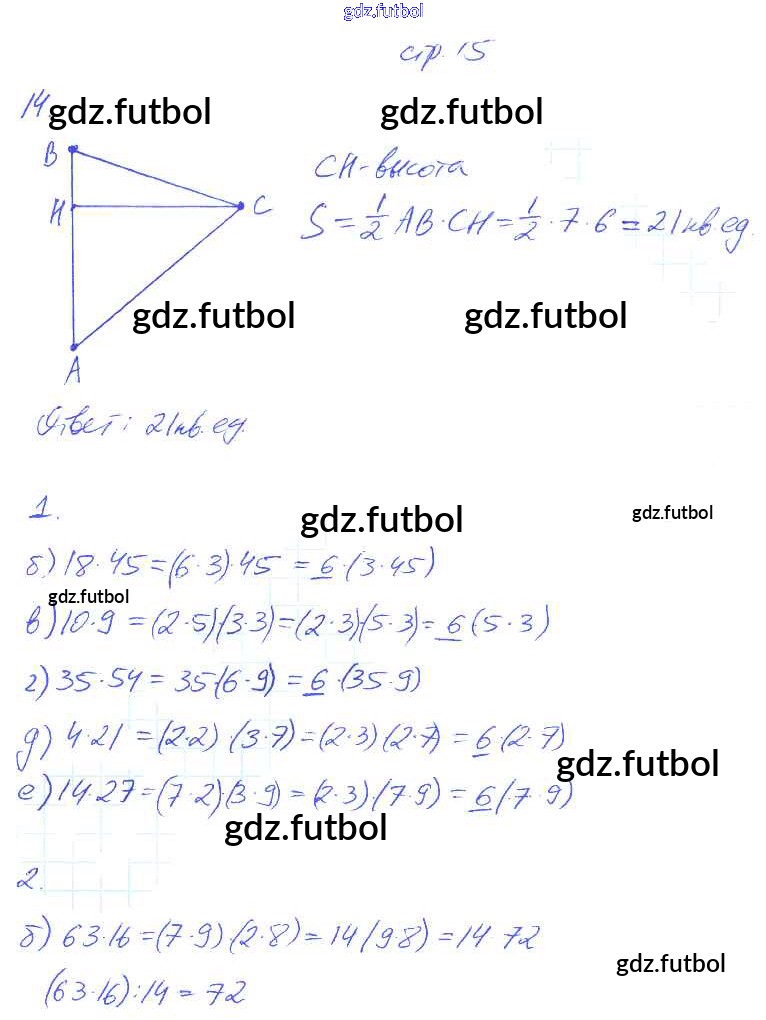 gdz.futbol
стр. 15
14.
gdz.futbol gdz.futbol
B
H
C
A
CH-высота
S = 1/2 AB · CH = 1/2 · 7 · 6 = 21 кв. ед.
gdz.futbol gdz.futbol
Ответ: 21 кв. ед.
1.
gdz.futbol gdz.futbol
б) 18 · 45 = (6 · 3) · 45 = 6 · (3 · 45)
gdz.futbol
в) 10 · 9 = (2 · 5)(3 · 3) = (2 · 3)(5 · 3) = 6 (5 · 3)
г) 35 · 54 = 35 · (6 · 9) = 6 · (35 · 9)
д) 4 · 21 = (2 · 2) · (3 · 7) = (2 · 3)(2 · 7) = 6 · (2 · 7)
gdz.futbol
е) 14 · 27 = (7 · 2) · (3 · 9) = (2 · 3)(7 · 9) = 6 (7 · 9)
gdz.futbol
2.
б) 63 · 16 = (7 · 9) · (2 · 8) = 14 (9 · 8) = 14 · 72
gdz.futbol
(63 · 16) : 14 = 72